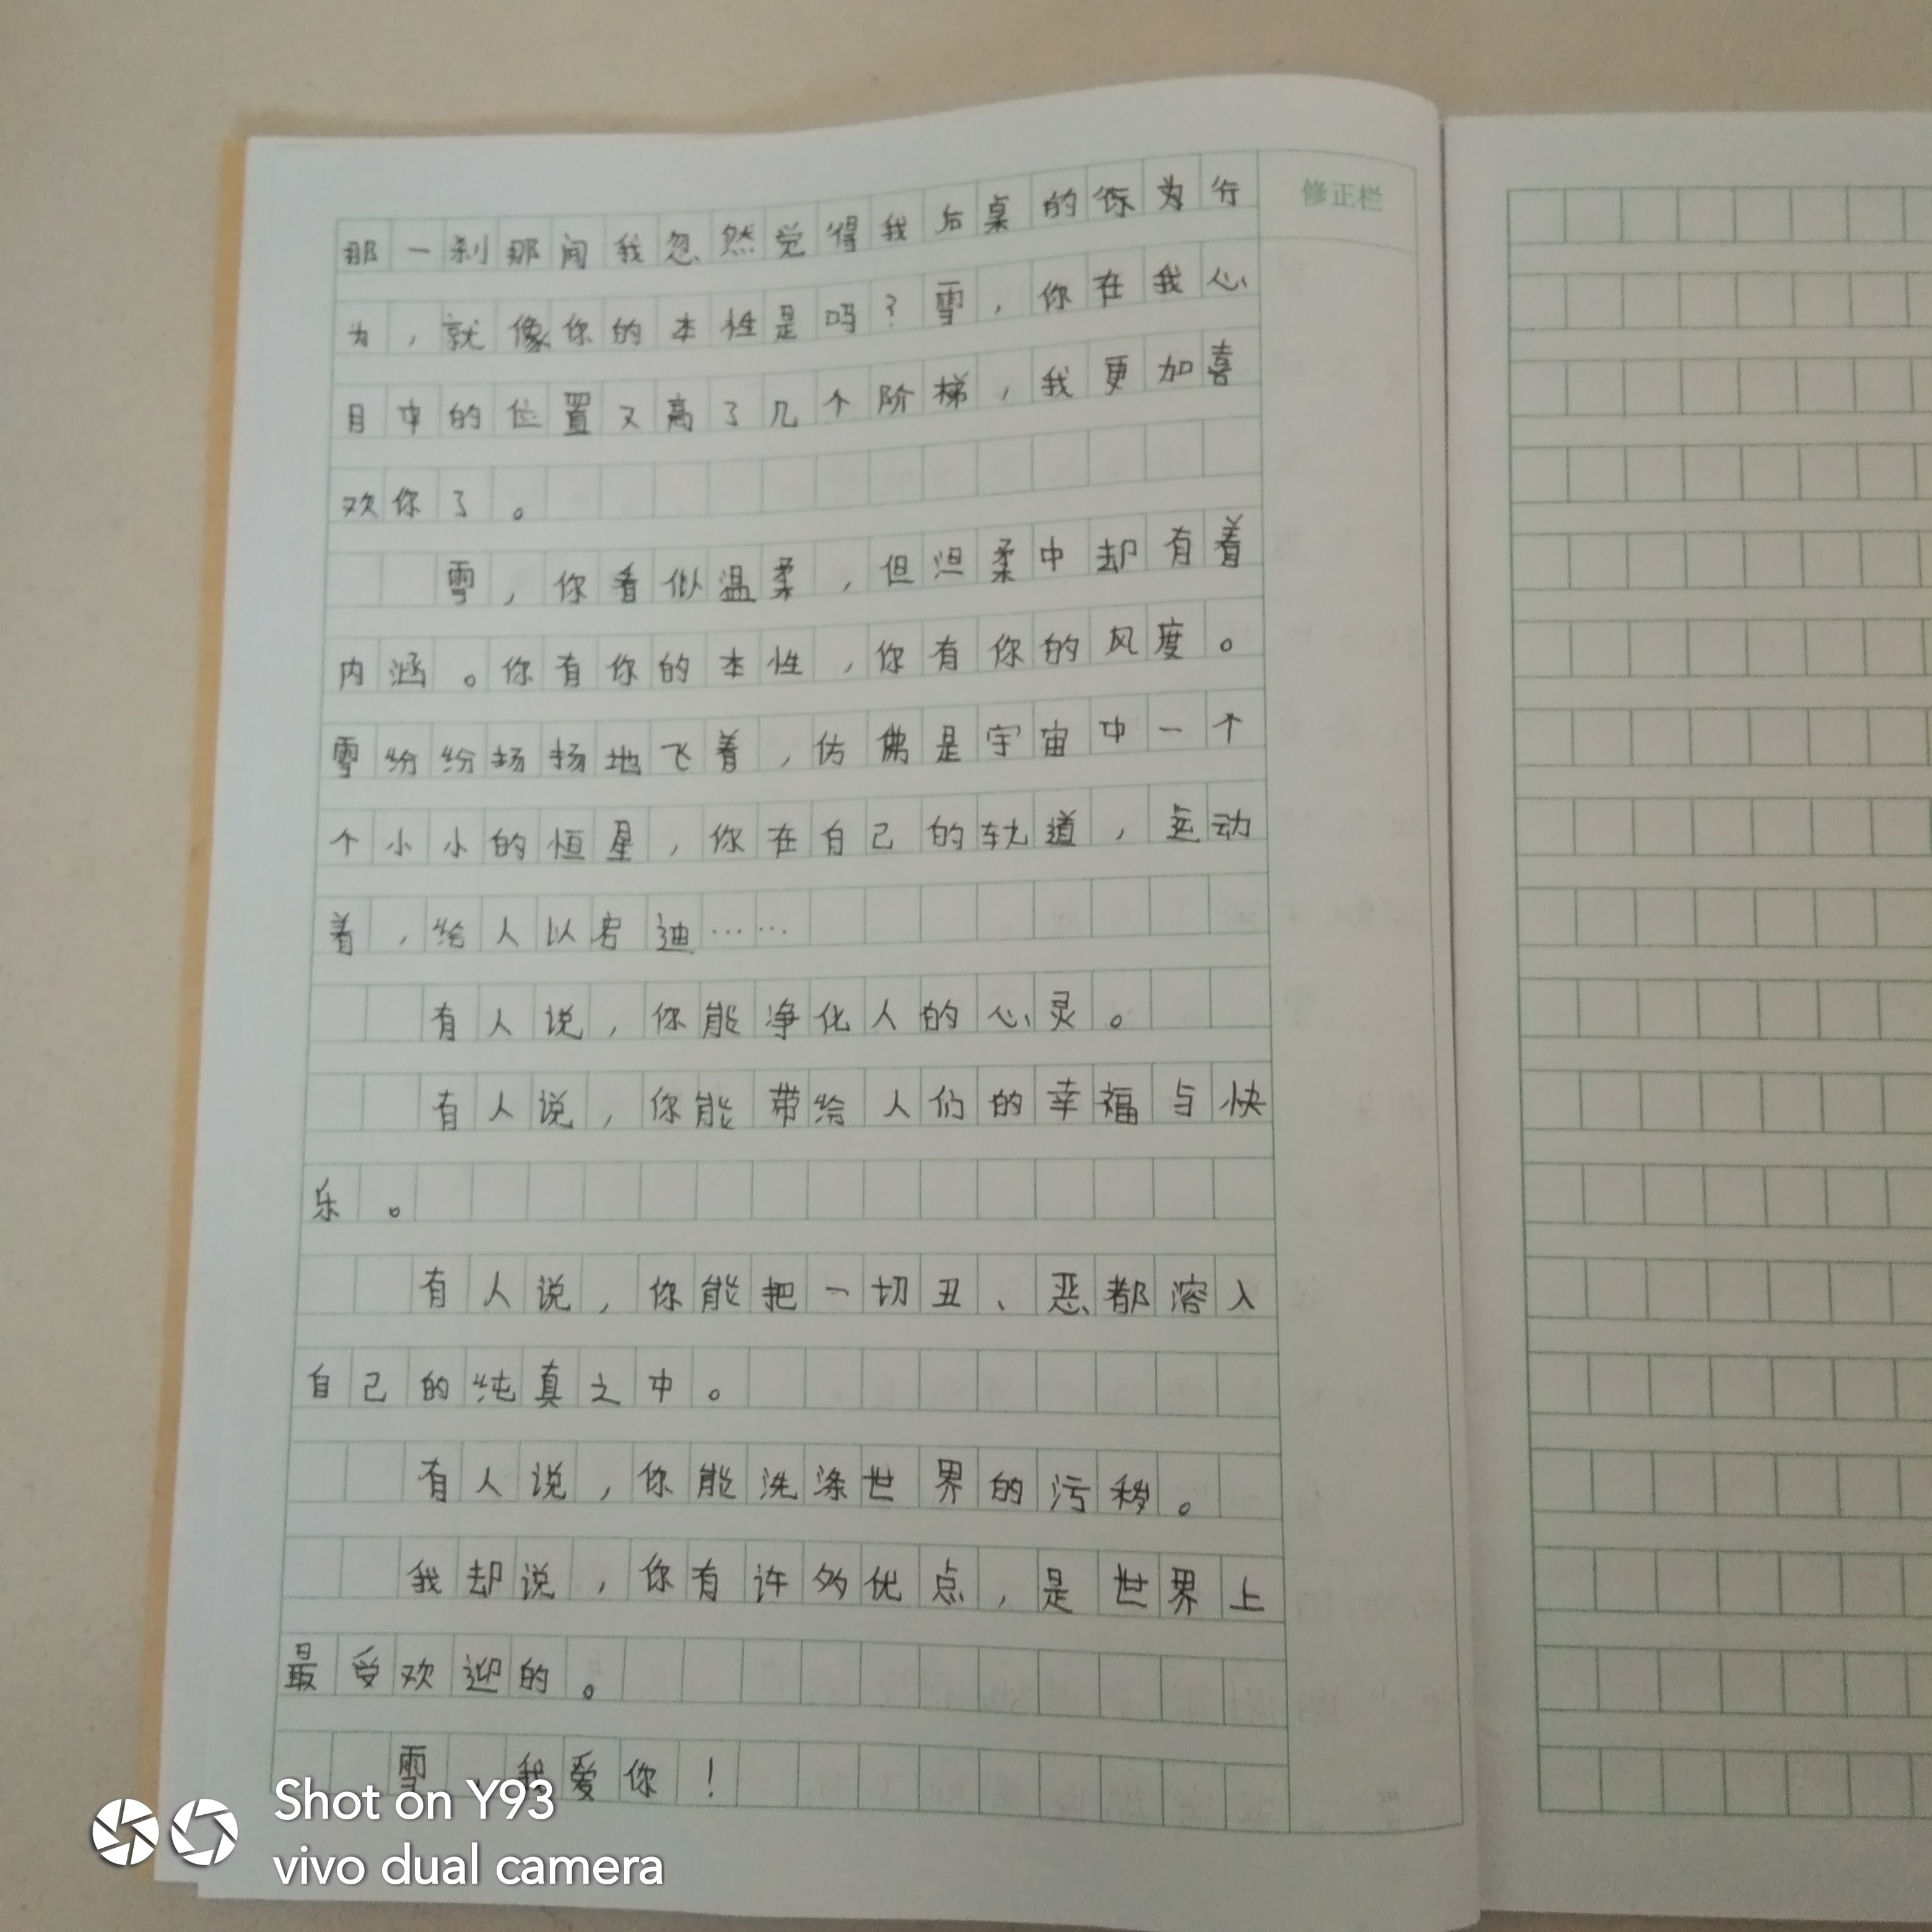 那一刹那间我忽然觉得我后桌的你为行
修正栏
为，就像你的本性是吗？雪，你在我心
目中的位置又高了几个阶梯，我更加喜
欢你了。
雪，你看似温柔，但温柔中却有着
内涵。你有你的本性，你有你的风度。
雪纷纷扬扬地飞着，仿佛是宇宙中一个
个小小的恒星，你在自己的轨道，运动
着，给人以启迪……
有人说，你能净化人的心灵。
有人说，你能带给人们的幸福与快
乐。
有人说，你能把一切丑、恶都溶入
自己的纯真之中。
有人说，你能洗涤世界的污秽。
我却说，你有许多优点，是世界上
最受欢迎的。
雪，我爱你！
Shot on Y93
vivo dual camera